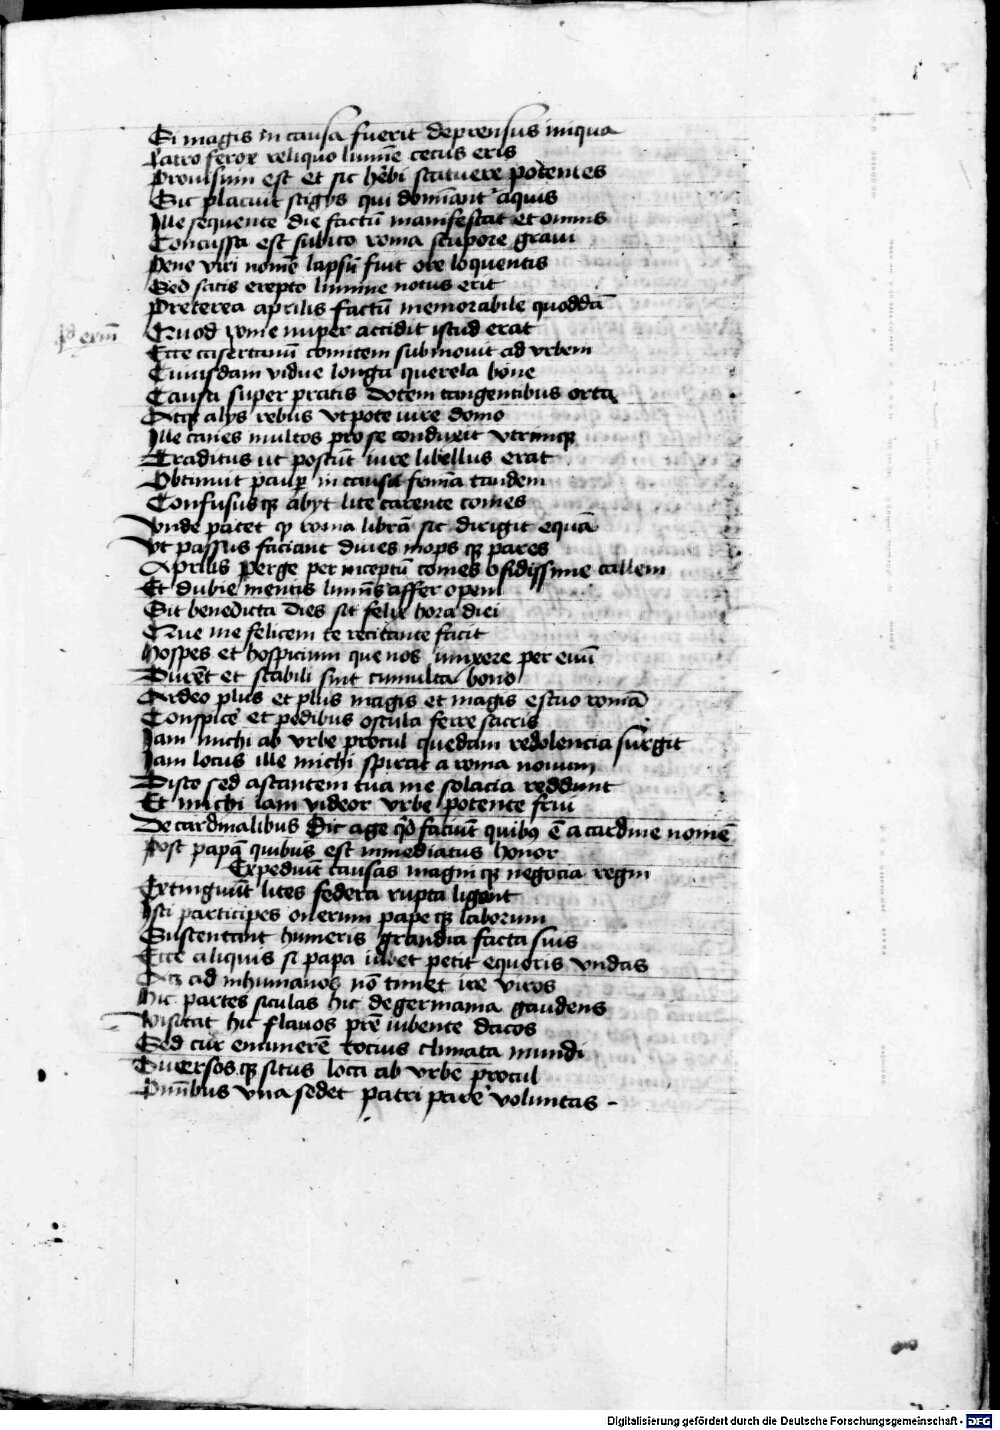 Si magis in causa fuerit deprensus iniqua
Latro ferox reliquo lumīe cecus eris
Provisum est et sic hēbi statuere potentes
Sic placuit stigys qui domināt aquis
Ille sequente die factū manifestat et omnis
Concussa est subito roma stupore gravi
Pene viri nomē lapsū fuit ore loquentis
Sed satis erepto lumine notus erit
Preterea aprilis factū memorabile quoddā
Quod rome nuper accidit istud erat
Ecce casertanū comitem submovit ad vrbem
Cuiusdam vidue longa querela bone
Causa super pratis dotem tangentibus orta
Atqꝫ alys rebus vtpote iure domo
Ille canes multos pro se conduxit vtrimqꝫ
Traditus ut poscūt iure libellus erat
Obtinuit paup̄ in causa femīa tandem
Confususqꝫ abyt lite carente comes
Vnde patet ꝙ roma librā sic dirigit equā
Vt passus faciant dives inops qꝫ pares
Aprilis perge per inceptū comes o fidissime callem
Et dubie mentis affer opem
Sit benedicta dies sit felix hora diei
Que me felicem te recitante facit
Hospes et hospicium que nos iunxere per euū
Durēt et stabili sint cumulta bono
Ardeo plus et plus magis et magis estuo romā
Conspice et pedibus oscula ferre sacris
Iam michi ab vrbe procul quedam redolencia surgit
Iam locus ille michi spirat a roma nouum
Disto sed astantem tua me solacia reddunt
Et michi iam videor vrbe potente frui
De cardinalibus Dic age qd̄ faciūt quibꝫ ē a cardine nomē
Post papā quibus est inmediatus honor
Expediūt causas magni qꝫ negocia regni
Extinguūt lites federa rupta ligant
Isti participes onerum pape qꝫ laborum
Sustentant humeris grandia facta suis
Ecce aliquis si papa iubet petit equoris vndas
Atqꝫ ad inhumanos nō timet ire viros
Hic partes siculas hic de germania gaudens
Visitat hic flauos prē iubente dacos
Sed cur enumerē tocius climata mundi
Diversosqꝫ situs loca ab vrbe procul
Omībus vna sedet patri parē voluntas
Digitalisierung gefördert durch die Deutsche Forschungsgemeinschaft - DFG